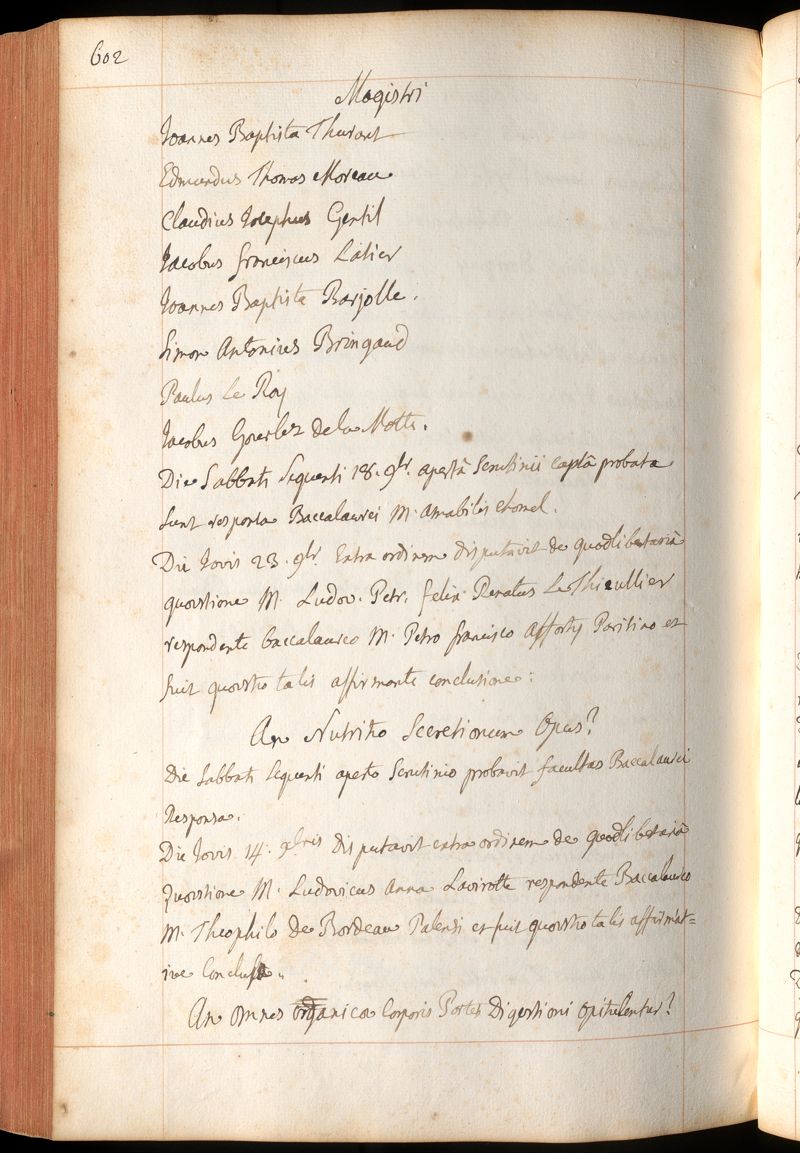 602
Magistri
Joannes Baptista Thurant
Edmundus Thomas Moreau
Claudius Josephus Gentil
Jacobus franciscus Latier
Joannes Baptista Barjolle.
Simon Antonius Bringaud
Paulus Le Roy
Jacobus Gourlez de la Motte.
Die Sabbati Sequenti 18. 9br. apertâ Scrutinii capsâ probata
sunt responsa Baccalaurei M. Amabilis Chomel.
Die Jovis 23. 9br. Extra ordinem disputavit de quodlibetariâ
quæstione M. Ludov. Petr. felix Renatus Le Thieullier
respondente baccalaureo M. Petro francisco Afforty Parisino et
fuit quæstio talis affirmante conclusione:
An Nutritio Secretionum Opus?
Die Sabbati Sequenti aperto Scrutinio probavit facultas Baccalaurei
Responsa.
Die Jovis 14. xbris Disputavit extra ordinem de quodlibetariâ
quæstione M. Ludovicus Anna Lavirotte respondente Baccalaureo
M. Theophilo de Bordeau Palensi et fuit quæstio talis affirmat=
ive
An omnes organicæ Corporis Partes Digestioni opitulentur?